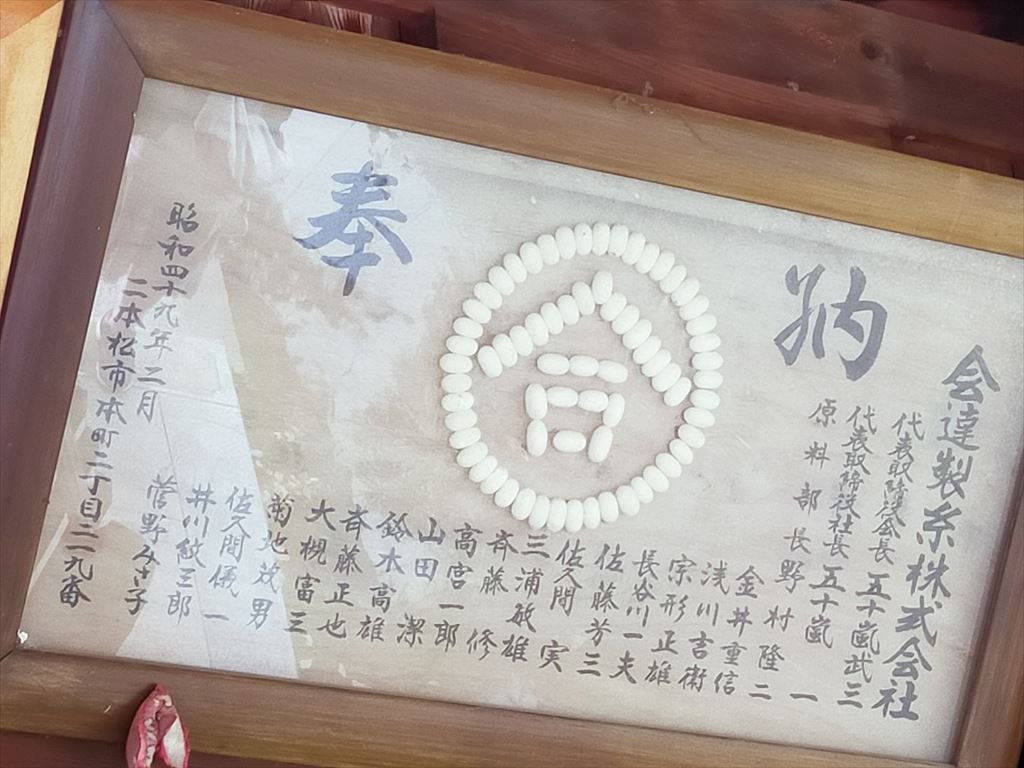 奉納
会達製糸株式会社
代表取締役会長 五十嵐武三
代表取締役社長 五十嵐一
原料部長 野村隆二
金井重信
浅川吉衛
宗形正雄
長谷川一夫
佐藤芳三
佐久間実
三浦敏雄
斉藤修
高宮一郎
山田潔
鈴木高雄
斉藤正也
大槻富三
菊地茂男
佐久間儀一
井川紋三郎
菅野みさ子
昭和四十九年二月
二本松市本町二丁目二一九番